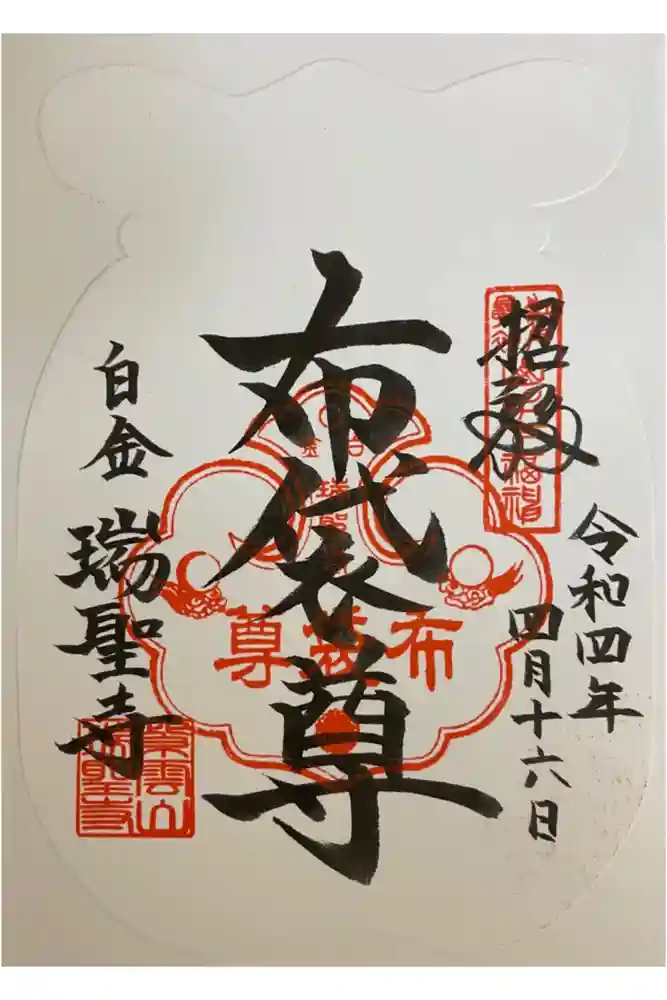 令和四年
四月十六日
布袋尊
白金
瑞聖寺
布袋尊
紫雲山
瑞聖寺